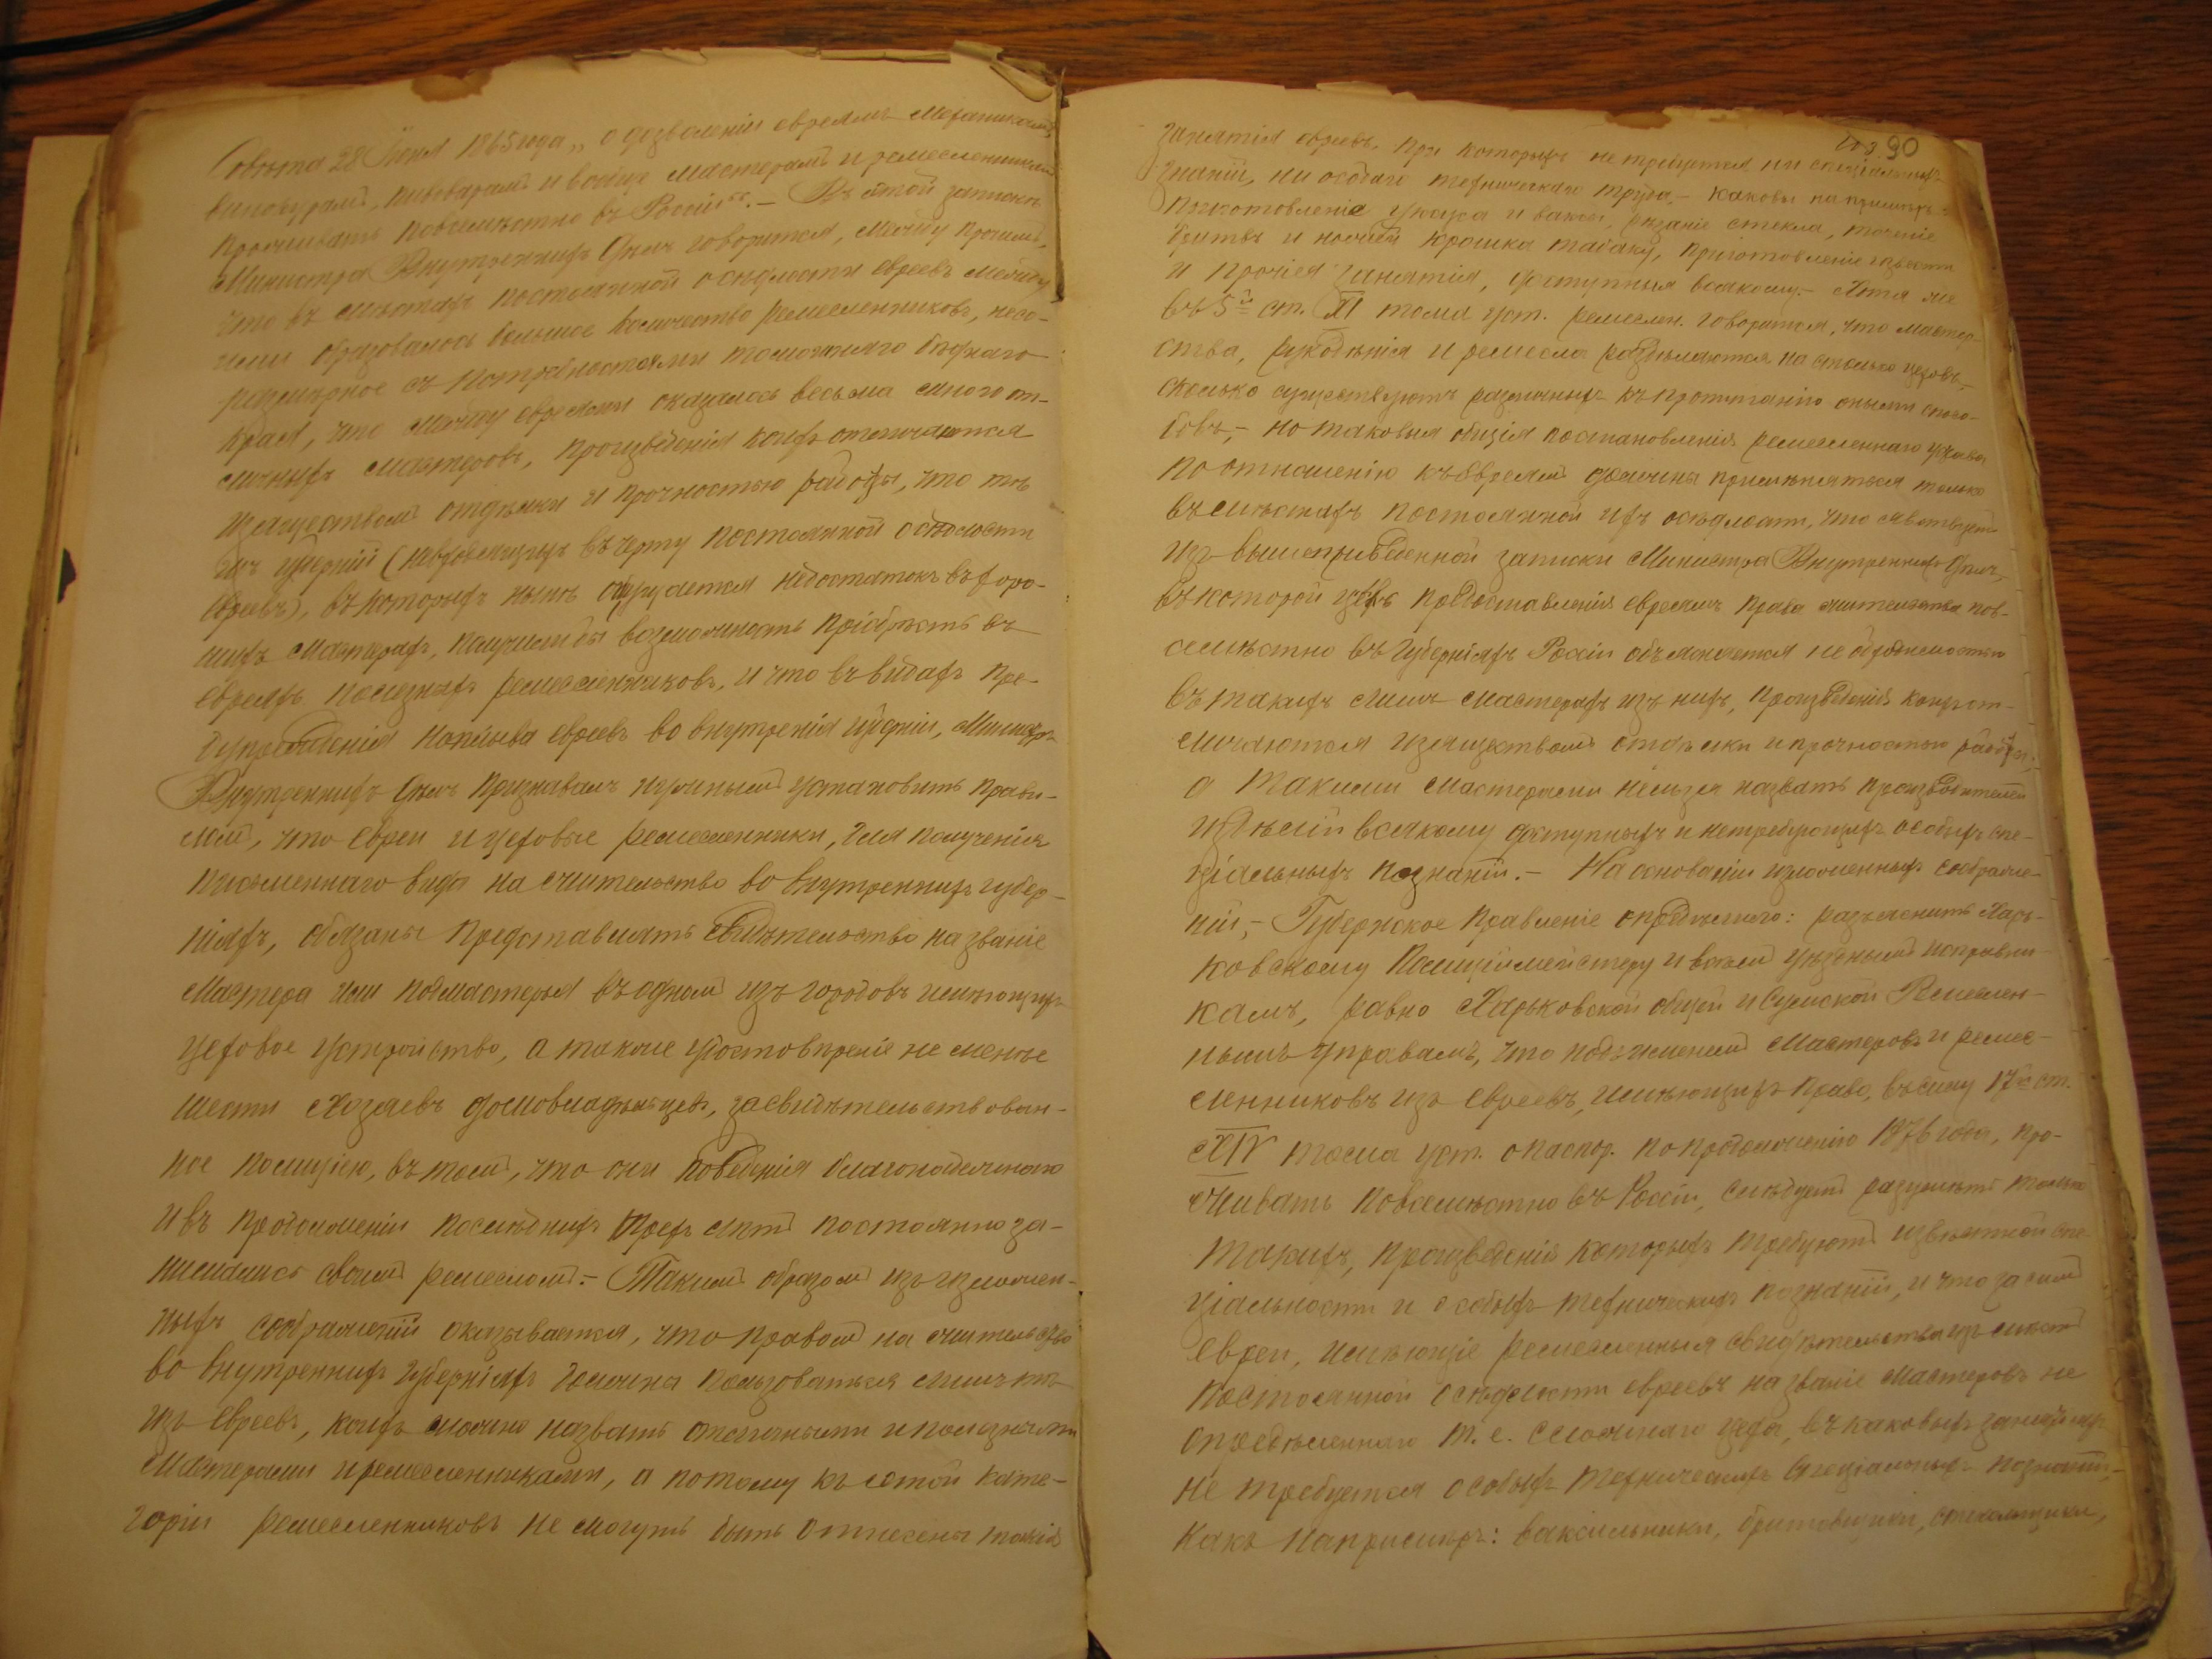 Совѣта 28 Іюня 1865 года „о дозволеніи евреямъ механикамъ,
винокурамъ, пивоварамъ и вообще мастерамъ и ремесленникамъ
проживать повсемѣстно въ Россіи“. – Въ этой запискѣ
Министра Внутреннихъ Дѣлъ говорится, между прочимъ,
что въ мѣстахъ постоянной осѣдлости евреевъ между
ними образовалось большое количество ремесленниковъ, несо-
размѣрное съ потребностями тамошняго бѣднаго
края, что между евреями оказалось весьма много от-
личныхъ мастеровъ, произведенія коихъ отличаются
изяществомъ отдѣлки и прочностью работы, что тѣ
изъ губерній (невходящихъ въ черту постоянной осѣдлости
евреевъ), въ которыхъ нынѣ ощущается недостатокъ въ хоро-
шихъ мастерахъ, получили бы возможность пріобрѣсть въ
евреяхъ полезныхъ ремесленниковъ, и что въ видахъ пре-
дупрежденія наплыва евреевъ во внутренія губерніи, Министръ
Внутреннихъ Дѣлъ признавалъ нужнымъ установить прави-
ломъ, что евреи и цеховые ремесленники, для полученія
письменнаго вида на жительство во внутреннихъ губер-
ніяхъ, обязаны представлять свидѣтельство на званіе
мастера или подмастерья въ одномъ изъ городовъ имѣющихъ
цеховое устройство, а также удостовѣреніе не менѣе
шести хозяевъ домовладѣльцевъ, засвидѣтельствован-
ное полиціею, въ томъ, что они поведенія благонадежнаго
и въ продолженіи послѣднихъ трехъ лѣтъ постоянно за-
нимались своимъ ремесломъ. – Такимъ образомъ изъ изложен-
ныхъ соображеній оказывается, что правомъ на жительство
во внутреннихъ губерніяхъ должны пользоваться лишь тѣ
изъ евреевъ, коихъ можно назвать отличными и полезными
мастерами и ремесленниками, а потому къ этой кате-
горіи ремесленниковъ не могутъ быть отнесены такія
90
занятія евреевъ, при которыхъ не требуется ни спеціальныхъ
знаній, ни особаго техническаго труда, – каковы напримѣръ:
приготовленіе уксуса и ваксы, рѣзаніе стекла, точеніе
бритвъ и ножей крошка табаку, приготовленіе извести
и прочія занятія, доступныя всякому. – Хотя же
въ 5й ст. XI тома уст. ремеслен. говорится, что мастер-
ства, рукодѣлія и ремесла раздѣляются на столько цеховъ, –
сколько существуютъ различныхъ къ пропитанію оными спосо-
бовъ, – но таковыя общія постановленія ремесленнаго устава
по отношенію къ евреямъ должны примѣняться только
въ мѣстахъ постоянной ихъ осѣдлости, что явствуетъ
изъ вышеприведенной записки Министра Внутреннихъ Дѣлъ,
въ которой цѣль предоставленія евреямъ права жительства пов-
семѣстно въ губерніяхъ Россіи объясняется необходимостью
въ такихъ лишь мастерахъ изъ нихъ, произведенія коихъ от-
личаются изяществомъ отдѣлки и прочностью работы;
а такими мастерами нельзя назвать производителей
издѣлій всякому доступныхъ и нетребующихъ особыхъ спе-
ціальныхъ познаній. – На основаніи изложенныхъ соображе-
ній, – Губернское Правленіе опредѣлило: разъяснить Харь-
ковскому Полиціймейстеру и всѣмъ уѣзднымъ исправни-
камъ, равно Харьковской общей и Сумской Ремеслен-
нымъ управамъ, что подъ именемъ мастеровъ и ремес-
ленниковъ изъ евреевъ, имѣющихъ право, въ силу 17й ст.
XIV тома уст. о паспор. по продолженію 1876 года, про-
живать повсемѣстно въ Россіи, слѣдуетъ разумѣть только
такихъ, произведенія которыхъ требуютъ извѣстной спе-
ціальности и особыхъ техническихъ познаній, и что за симъ
евреи, имѣющіе ремесленныя свидѣтельства изъ мѣстъ
постоянной осѣдлости евреевъ на званіе мастеровъ не
опредѣленнаго т. е. сложнаго цеха, въ каковыхъ занятіяхъ
не требуется особыхъ техническихъ спеціальныхъ познаній, –
какъ напримѣръ: ваксильники, бритовщики, стекольщики,